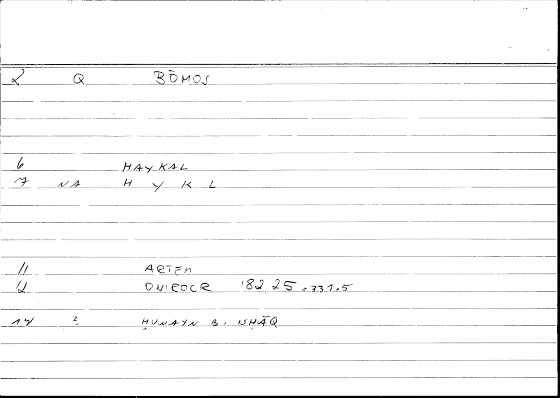 2 Q BŌMOS
6 HAYKAL
7 NA H Y K L
11 ARTEM
12 ONIROCR 182 25 = 331.5
14 2 ḤUNAYN B. ISḤĀQ